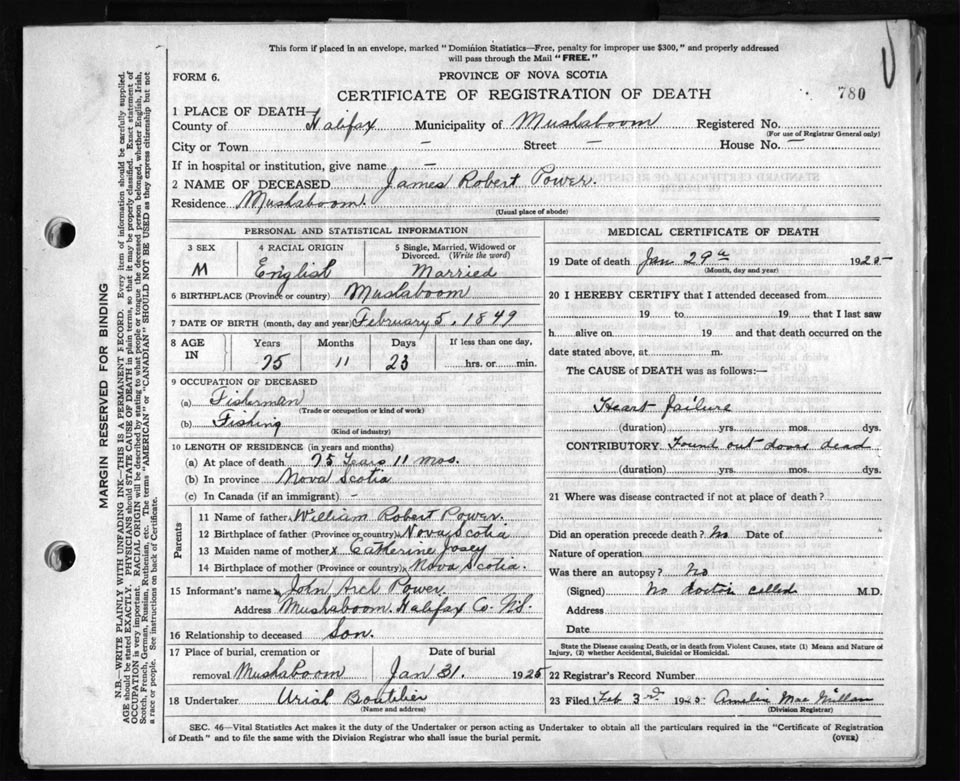 This form if placed in an envelope, marked "Dominion Statistics—Free, penalty for improper use $300," and properly addressed
will pass through the Mail "FREE."
FORM 6.
PROVINCE OF NOVA SCOTIA
CERTIFICATE OF REGISTRATION OF DEATH
780
1 PLACE OF DEATH—
County of Halifax Municipality of Mushaboom Registered No.
(For use of Registrar General only)
City or Town – Street – House No. –
If in hospital or institution, give name –
2 NAME OF DECEASED James Robert Power.
Residence Mushaboom.
(Usual place of abode)
PERSONAL AND STATISTICAL INFORMATION
3 SEX
M
4 RACIAL ORIGIN
English
5 Single, Married, Widowed or
Divorced. (Write the word)
Married
6 BIRTHPLACE (Province or country) Mushaboom
7 DATE OF BIRTH (month, day and year) February 5, 1849
8 AGE
IN
Years Months Days If less than one day,
75 11 23 hrs. or min.
9 OCCUPATION OF DECEASED
(a) Fisherman
(Trade or occupation or kind of work)
(b) Fishing
(Kind of industry)
10 LENGTH OF RESIDENCE (in years and months)
(a) At place of death 75 Years 11 mos.
(b) In province Nova Scotia
(c) In Canada (if an immigrant) –
Parents
11 Name of father William Robert Power.
12 Birthplace of father (Province or country) Nova Scotia
13 Maiden name of mother x Catherine Josey
14 Birthplace of mother (Province or country) Nova Scotia.
15 Informant's name John Arch Power.
Address Mushaboom Halifax Co. N.S.
16 Relationship to deceased Son.
17 Place of burial, cremation or Date of burial
removal Mushaboom Jan 31. 1925
18 Undertaker Urial Boutilier
(Name and address)
MEDICAL CERTIFICATE OF DEATH
19 Date of death Jan 29th 1925
(Month, day and year)
20 I HEREBY CERTIFY that I attended deceased from
19 to 19 that I last saw
h alive on 19 and that death occurred on the
date stated above, at m.
The CAUSE of DEATH was as follows:—
Heart Failure
(duration) yrs. mos. dys.
CONTRIBUTORY Found out doors dead
(duration) yrs. mos. dys.
21 Where was disease contracted if not at place of death?
Did an operation precede death? No Date of
Nature of operation
Was there an autopsy? No
(Signed) No doctor called M.D.
Address
Date
State the Disease causing Death, or in death from Violent Causes, state (1) Means and Nature of
Injury, (2) whether Accidental, Suicidal or Homicidal.
22 Registrar's Record Number
23 Filed Feb 3rd 1925 Amelia MacMillan
(Division Registrar)
SEC. 46—Vital Statistics Act makes it the duty of the Undertaker or person acting as Undertaker to obtain all the particulars required in the "Certificate of Registration
of Death" and to file the same with the Division Registrar who shall issue the burial permit.
(OVER)
MARGIN RESERVED FOR BINDING
N.B.—WRITE PLAINLY WITH UNFADING INK—THIS IS A PERMANENT RECORD. Every item of information should be carefully supplied.
AGE should be stated EXACTLY. PHYSICIANS should STATE CAUSE OF DEATH in plain terms, so that it may be properly classified. Exact statement of
OCCUPATION is very important. RACIAL ORIGIN will be described by stating to what people or tongue the deceased person belonged, whether English, Irish,
Scotch, French, German, Russian, Ruthenian, etc. The terms "AMERICAN" or "CANADIAN" SHOULD NOT BE USED as they express citizenship but not
a race or people. See instructions on back of Certificate.